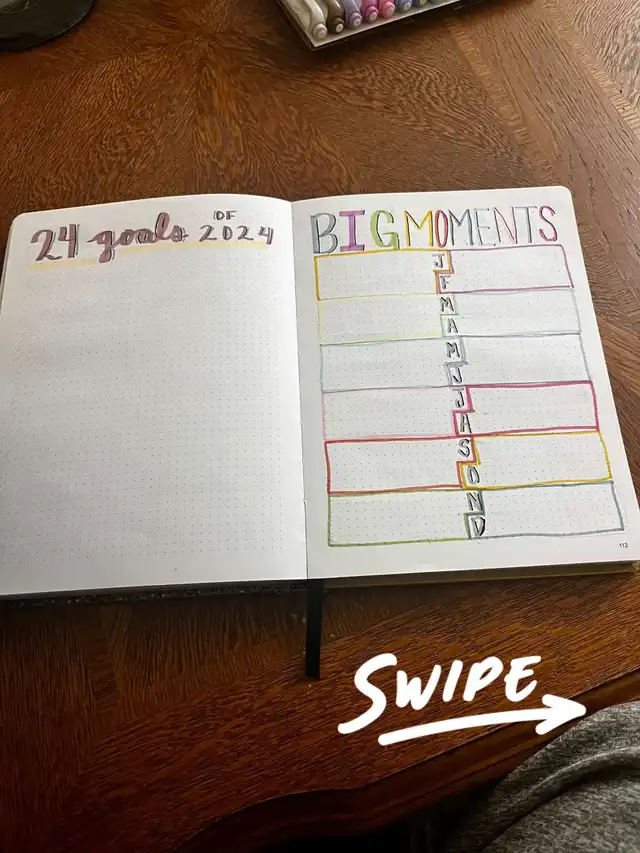 24 goals OF 2024
BIG MOMENTS
J
F
M
A
M
J
J
A
S
O
N
D
112
SWIPE